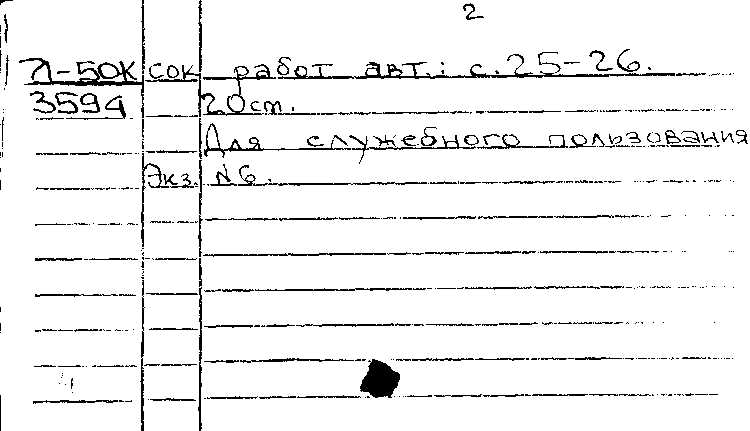 2
Л-50К сок работ авт.: с.25-26.
3594 20cm.
Для служебного пользования
Экз. №6.